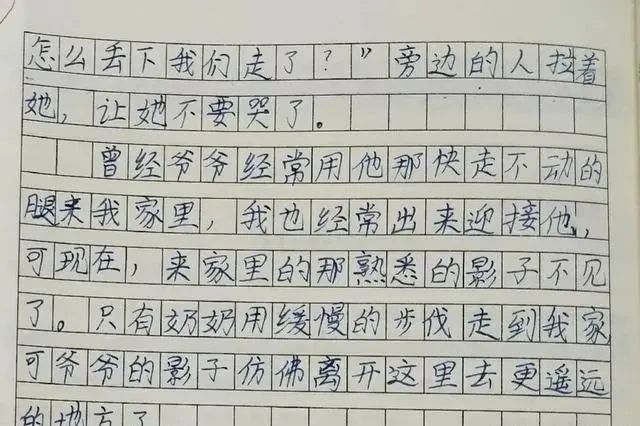 怎么丢下我们走了？”旁边的人拉着
她，让她不要哭了。
曾经爷爷经常用他那快走不动的
腿来我家里，我也经常出来迎接他，
可现在，来家里的那熟悉的影子不见
了。只有奶奶用缓慢的步伐走到我家
可爷爷的影子仿佛离开这里去更遥远
的地方了